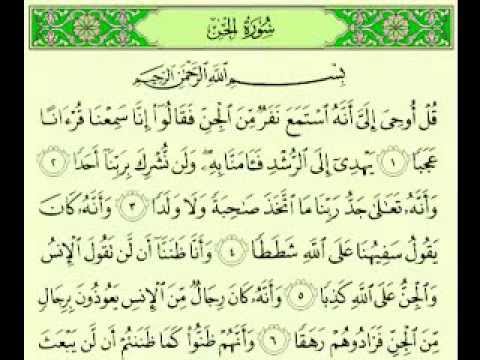 سُورَةُ الجِنِّ
بِسْمِ ٱللَّهِ ٱلرَّحْمَٰنِ ٱلرَّحِيمِ
قُلْ أُوحِىَ إِلَىَّ أَنَّهُ ٱسْتَمَعَ نَفَرٌ مِّنَ ٱلْجِنِّ فَقَالُوٓا۟ إِنَّا سَمِعْنَا قُرْءَانًا
عَجَبًا ١ يَهْدِىٓ إِلَى ٱلرُّشْدِ فَـَٔامَنَّا بِهِۦ وَلَن نُّشْرِكَ بِرَبِّنَآ أَحَدًا ٢
وَأَنَّهُۥ تَعَٰلَىٰ جَدُّ رَبِّنَا مَا ٱتَّخَذَ صَٰحِبَةً وَلَا وَلَدًا ٣ وَأَنَّهُۥ كَانَ
يَقُولُ سَفِيهُنَا عَلَى ٱللَّهِ شَطَطًا ٤ وَأَنَّا ظَنَنَّآ أَن لَّن تَقُولَ ٱلْإِنسُ
وَٱلْجِنُّ عَلَى ٱللَّهِ كَذِبًا ٥ وَأَنَّهُۥ كَانَ رِجَالٌ مِّنَ ٱلْإِنسِ يَعُوذُونَ بِرِجَالٍ
مِّنَ ٱلْجِنِّ فَزَادُوهُمْ رَهَقًا ٦ وَأَنَّهُمْ ظَنُّوا۟ كَمَا ظَنَنتُمْ أَن لَّن يَبْعَثَ